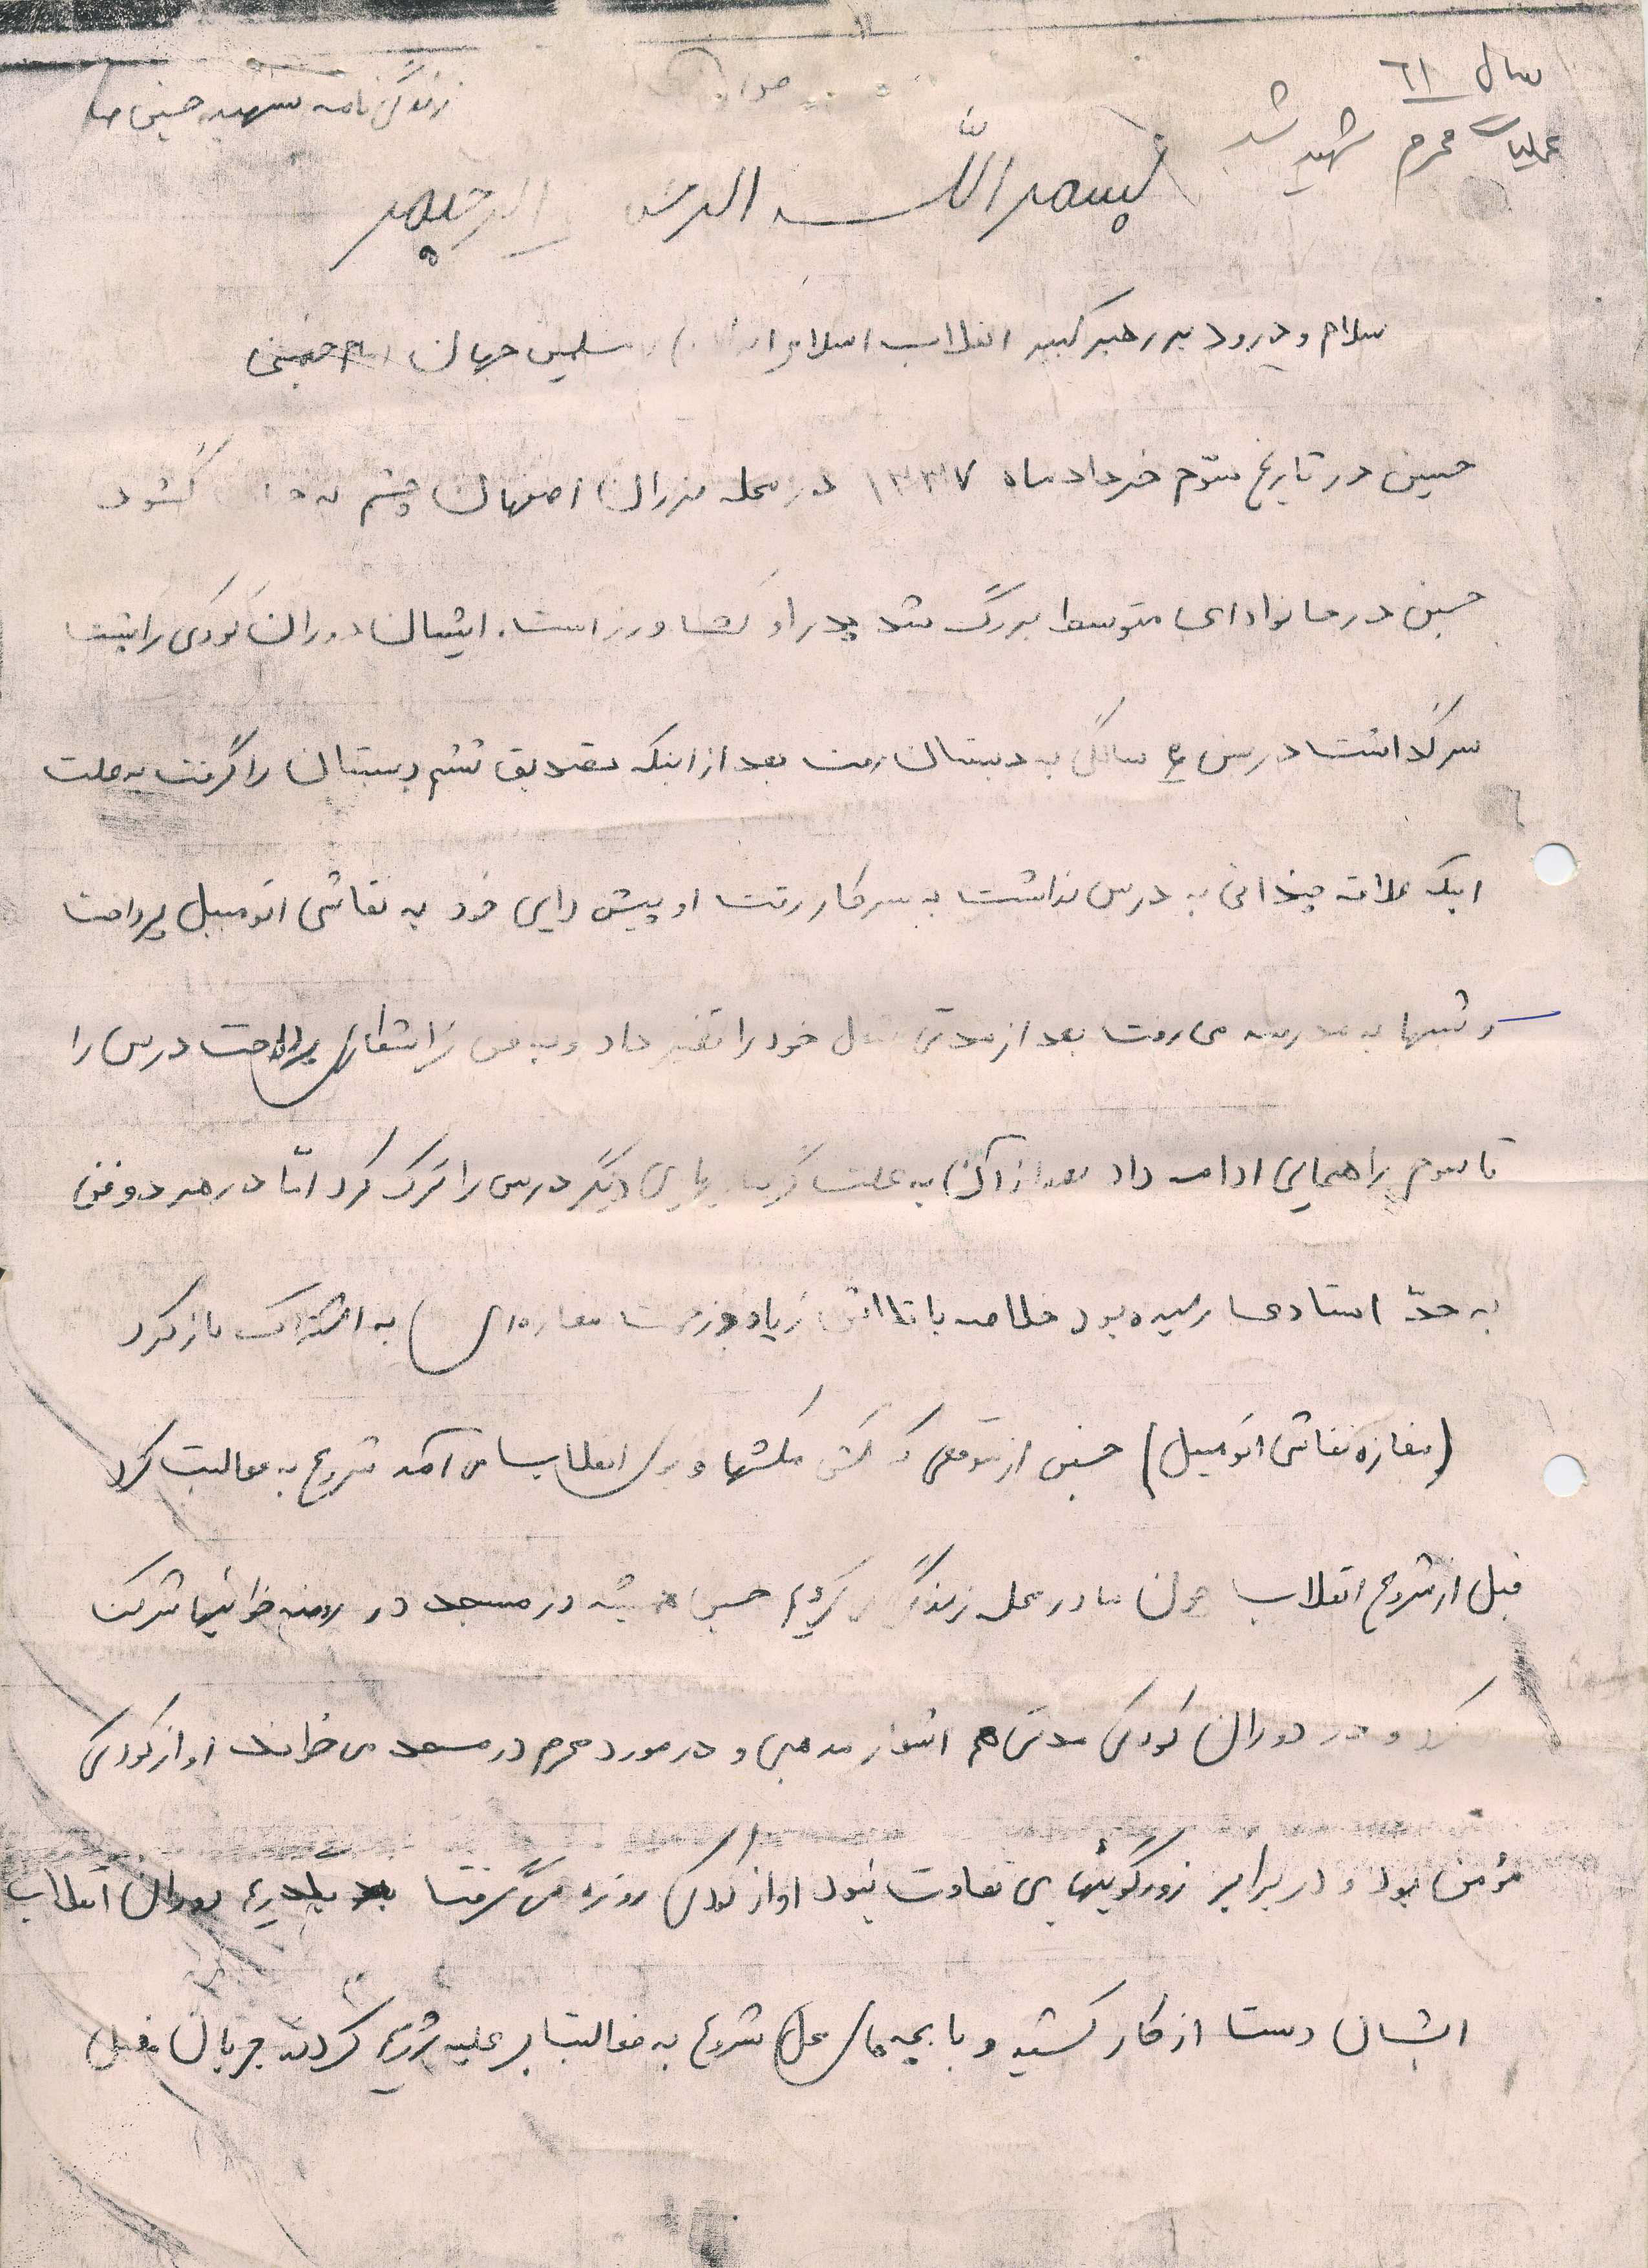 سال ٦١
عملیات محرم شهید شد
زندگی نامه شهید حسین
بسم الله الرحمن الرحیم
سلام و درود بر رهبر کبیر انقلاب اسلامی مسلمین جهان امام خمینی
حسین در تاریخ سوّم خرداد ماه ۱۳۳۷ در محله اصفهان چشم به گشود
حسین در خانواده‌ای متوسط بزرگ شد پدر او کشاورز است. ایشان دوران کودکی را پشت
سر گذاشت در سن ۶ سالگی به دبستان رفت بعد از اینکه تصدیق ششم دبستان را گرفت به علت
اینکه علاقه چندانی به درس نداشت به سر کار رفت او پیش دایی خود به نقاشی اتومبیل پرداخت
و شبها به مدرسه می رفت بعد از مدتی شغل خود را تغییر داد و به فن تراشکاری پرداخت درس را
تا سوم راهنمایی ادامه داد بعد از آن به علت گرفتاریهای دیگر درس را ترک کرد امّا در هر دو فن
به حدّ استادی رسیده بود خلاصه با تلاش زیاد و زحمت مغازه‌ای به اشتراک باز کرد
(مغازه نقاشی اتومبیل) حسین از موقعی که کشمکشها و بوی انقلاب می آمد شروع به فعالیت کرد
قبل از شروع انقلاب چون ما در محله زندگی می کردیم حسین همیشه در مسجد در روضه خوانیها شرکت
کرد و در دوران کودکی مدتی هم اشعار مذهبی و در مورد محرم در مسجد می خواند او از کودکی
مؤمن بود و در برابر زورگوئیها بی تفاوت نبود او از کودکی روزه می گرفت دوران انقلاب
ایشان دست از کار کشید و با بچه های محل شروع به فعالیت بر علیه رژیم کردند جریان مفصل